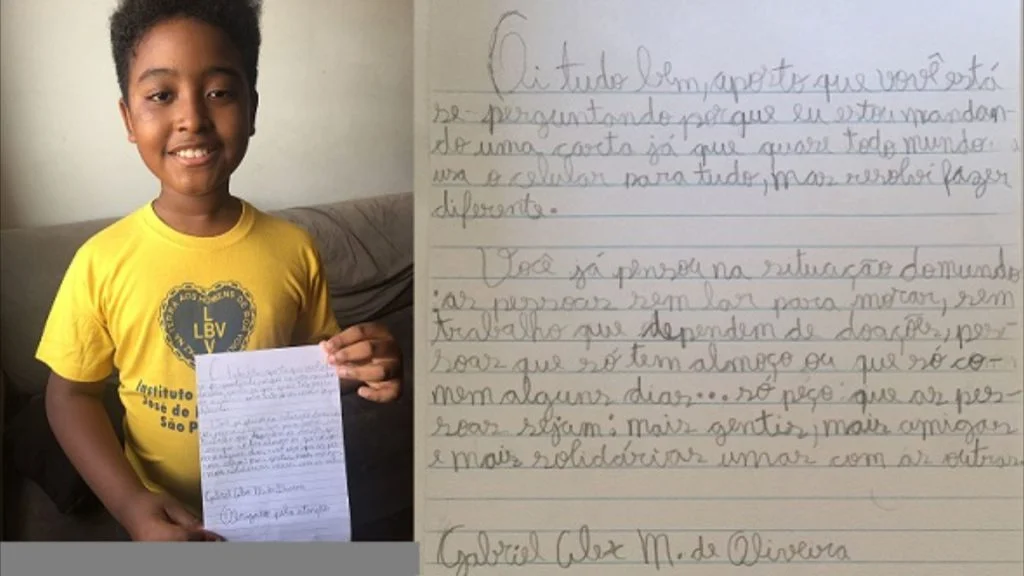 L
LBV
V
Instituto
José de
São P
Gabriel Alex M. de Oliveira
Obrigado pela atenção
Oi tudo bem, aposto que você está
se-perguntando porque eu estou mandan-
do uma carta já que quase todo mundo
usa o celular para tudo, mas resolvi fazer
diferente.
Você já pensou na situação do mundo
:as pessoas sem lar para morar, sem
trabalho que dependem de doações, pes-
soas que só tem almoço ou que só co-
mem alguns dias... só peço que as pes-
soas sejam: mais gentis, mais amigas
e mais solidárias umas com as outras.
Gabriel Alex M. de Oliveira